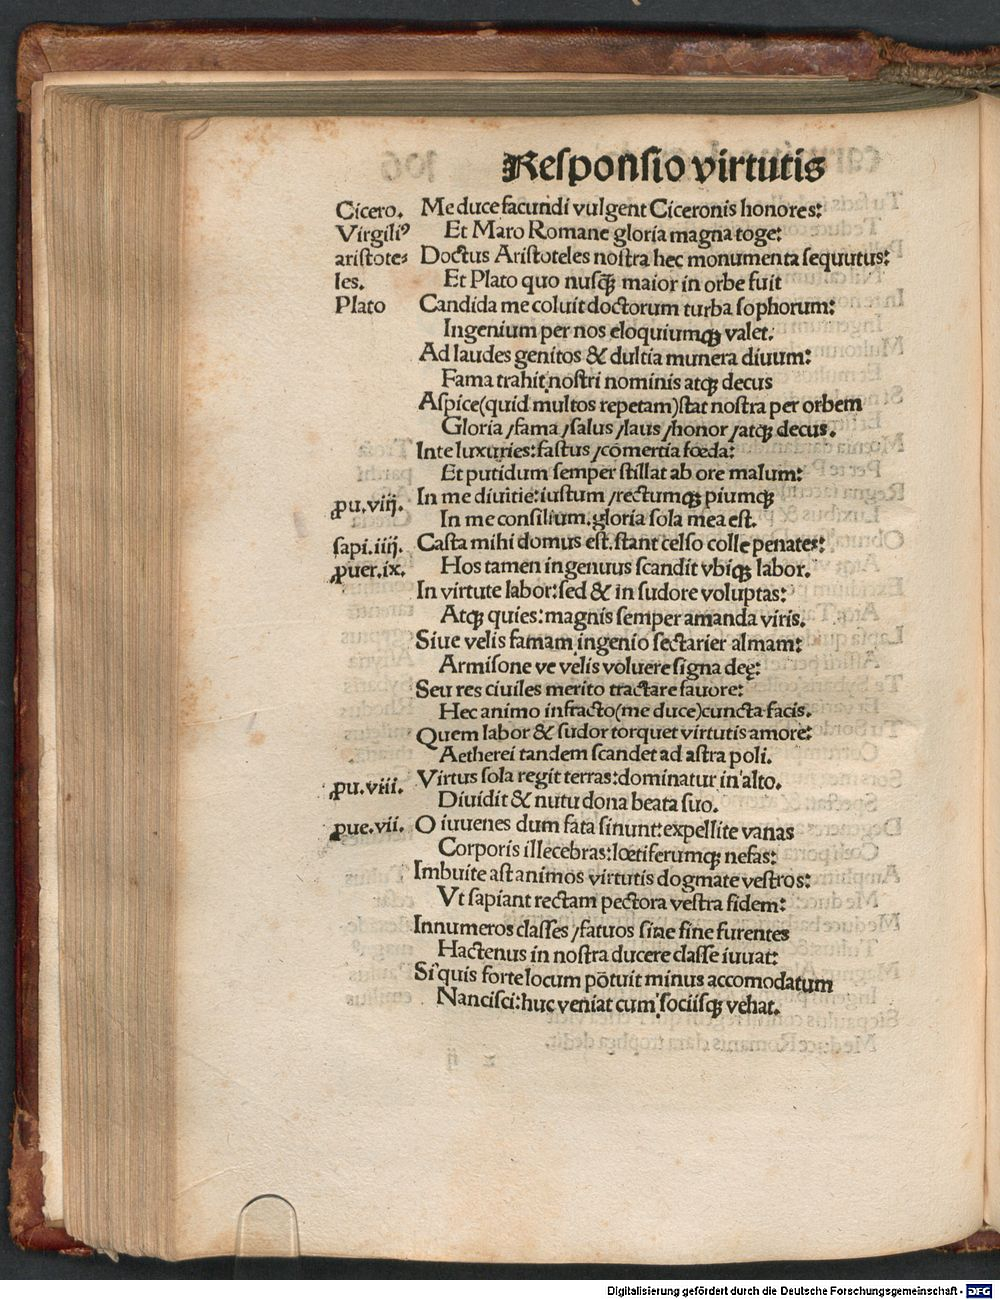 Responsio virtutis
Cicero. Me duce facundi vulgent Ciceronis honores:
Virgiliꝰ Et Maro Romane gloria magna toge:
aristote= Doctus Aristoteles nostra hec monumenta sequutus:
les. Et Plato quo nusꝙ̃ maior in orbe fuit
Plato Candida me coluit doctorum turba sophorum:
Ingenium per nos eloquiumqꝫ valet:
Ad laudes genitos & dultia munera diuum:
Fama trahit, nostri nominis atqꝫ decus
Aspice (quid multos repetam) stat nostra per orbem
Gloria / fama / salus / laus / honor / atqꝫ decus.
In te luxuries: fastus / cōmertia fœda:
Et putidum semper stillat ab ore malum:
In me diuitie: iustum / rectumqꝫ piumqꝫ
ꝓu. viij. In me consilium. gloria sola mea est.
sapi. iiij. Casta mihi domus est. stant celso colle penates:
ꝓuer. ix. Hos tamen ingenuus scandit vbiqꝫ labor.
In virtute labor: sed & in sudore voluptas:
Atqꝫ quies: magnis semper amanda viris.
Siue velis famam ingenio sectarier almam:
Armisone ve velis voluere signa deę:
Seu res ciuiles merito tractare fauore:
Hec animo infracto (me duce) cuncta facis.
Quem labor & sudor torquet virtutis amore:
Aetherei tandem scandet ad astra poli.
Virtus sola regit terras: dominatur in alto.
ꝓu. viii. Diuidit & nutu dona beata suo.
ꝓue. vii. O iuuenes dum fata sinunt: expellite vanas
Corporis illecebras: lœtiferumqꝫ nefas:
Imbuite ast animos virtutis dogmate vestros:
Vt sapiant rectam pectora vestra fidem:
Innumeros classes / fatuos sine fine furentes
Hactenus in nostra ducere classe iuuat:
Si quis forte locum pōtuit minus accomodatum
Nancisci: huc veniat cum sociisqꝫ vehat.
Digitalisierung gefördert durch die Deutsche Forschungsgemeinschaft - DFG